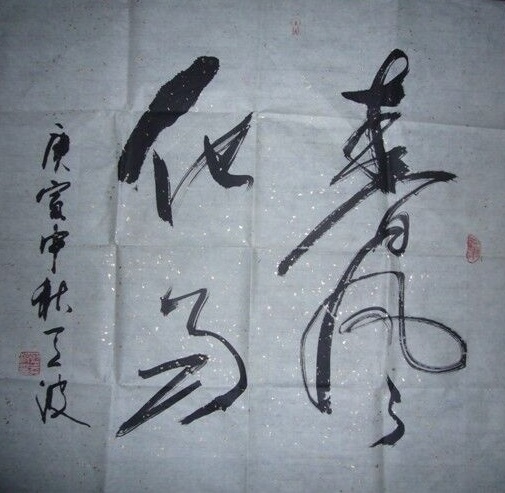 春风
化雨
庚寅中秋 波